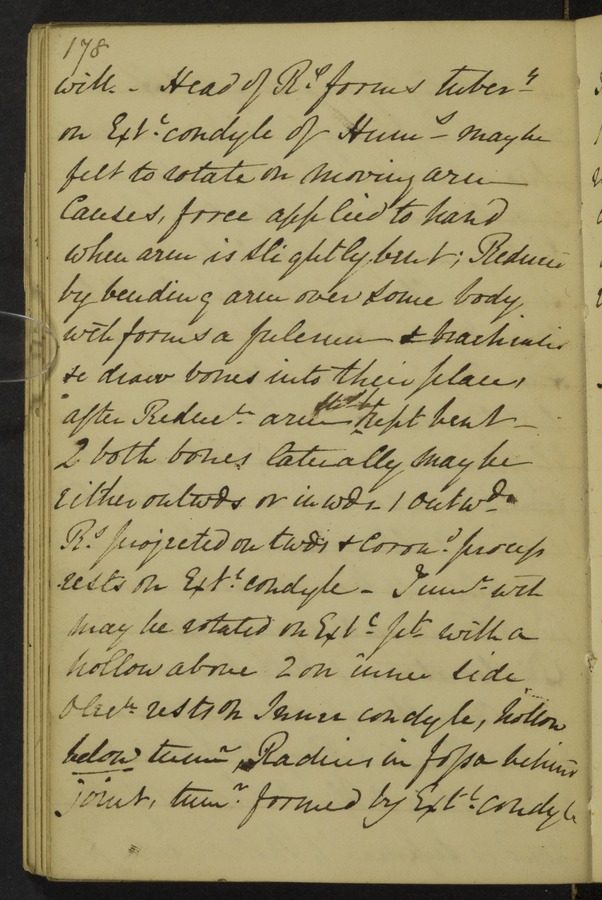 178
with - Head of Rs forms tuberty
on Extl condyle of Hums - may be
felt to rotate on moving arm
Causes, force applied to hand
when arm is slightly bent; Reduced
by bending arm over some body
wch forms a fulcrum & brachialis
&c draw bones into their place,
after Reductn arm must kept bent -
2 both bones laterally may be
either outwds or inwds 1 Outwds
Rs projected outwds & Corond process
rests on Extl condyle - Tumr wch
may be rotated on Extl pt with a
hollow above 2 on inner side
Olecrn rests on Inner condyle, hollow
below tumr, Radius in fossa behind
joint, tumr formed by Extl condyle